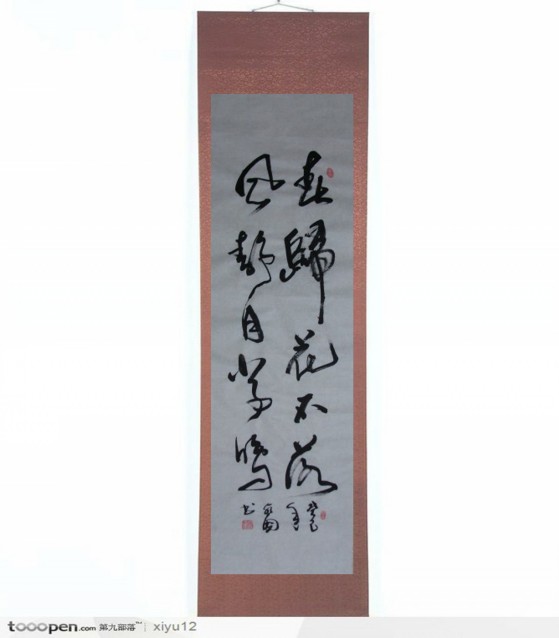 春歸花不落
風靜月常明
tooopen.com 第九部落™ | xiyu12